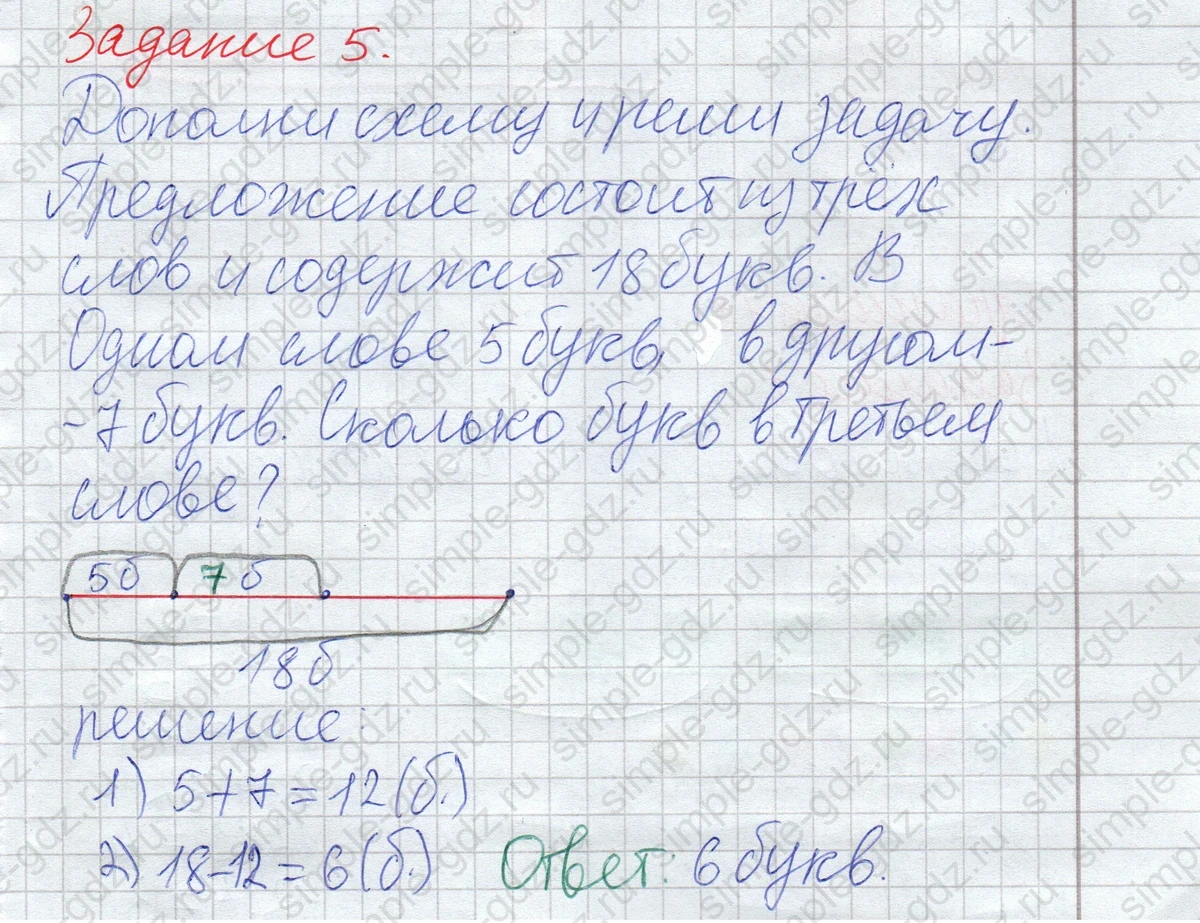 Задание 5.
Дополни схему и реши задачу.
Предложение состоит из трёх
слов и содержит 18 букв. В
Одном слове 5 букв, в другом-
-7 букв. Сколько букв в третьем
слове?
5б 7 б
18б
решение:
1) 5+7=12(б.)
2) 18-12=6(б.) Ответ: 6 букв.
simple-gdz.ru